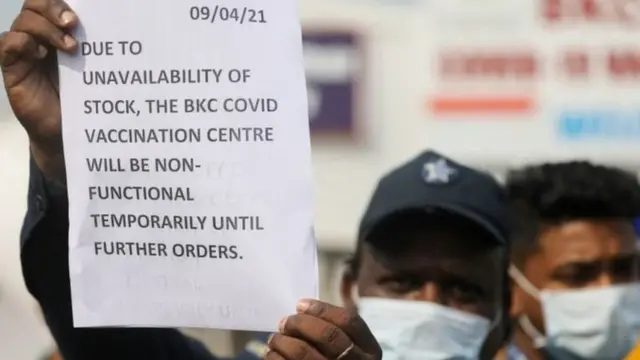 BKC
COVID 19 VA
09/04/21
DUE TO
UNAVAILABILITY OF
STOCK, THE BKC COVID
VACCINATION CENTRE
WILL BE NON-
FUNCTIONAL
TEMPORARILY UNTIL
FURTHER ORDERS.